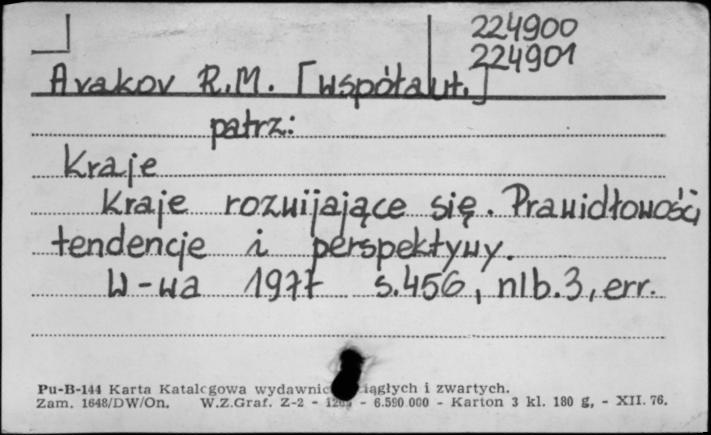 224900
224901
Avakov R.M. [współaut.]
patrz:
Kraje
Kraje rozwijające się. Prawidłowości
tendencje i perspektywy.
W-wa 1977 s.456, nlb.3, err.
Pu-B-144 Karta Katalogowa wydawnic ciągłych i zwartych.
Zam. 1648/DW/On. W.Z.Graf. Z-2 - - 6.590.000 - Karton 3 kl. 180 g, - XII. 76.